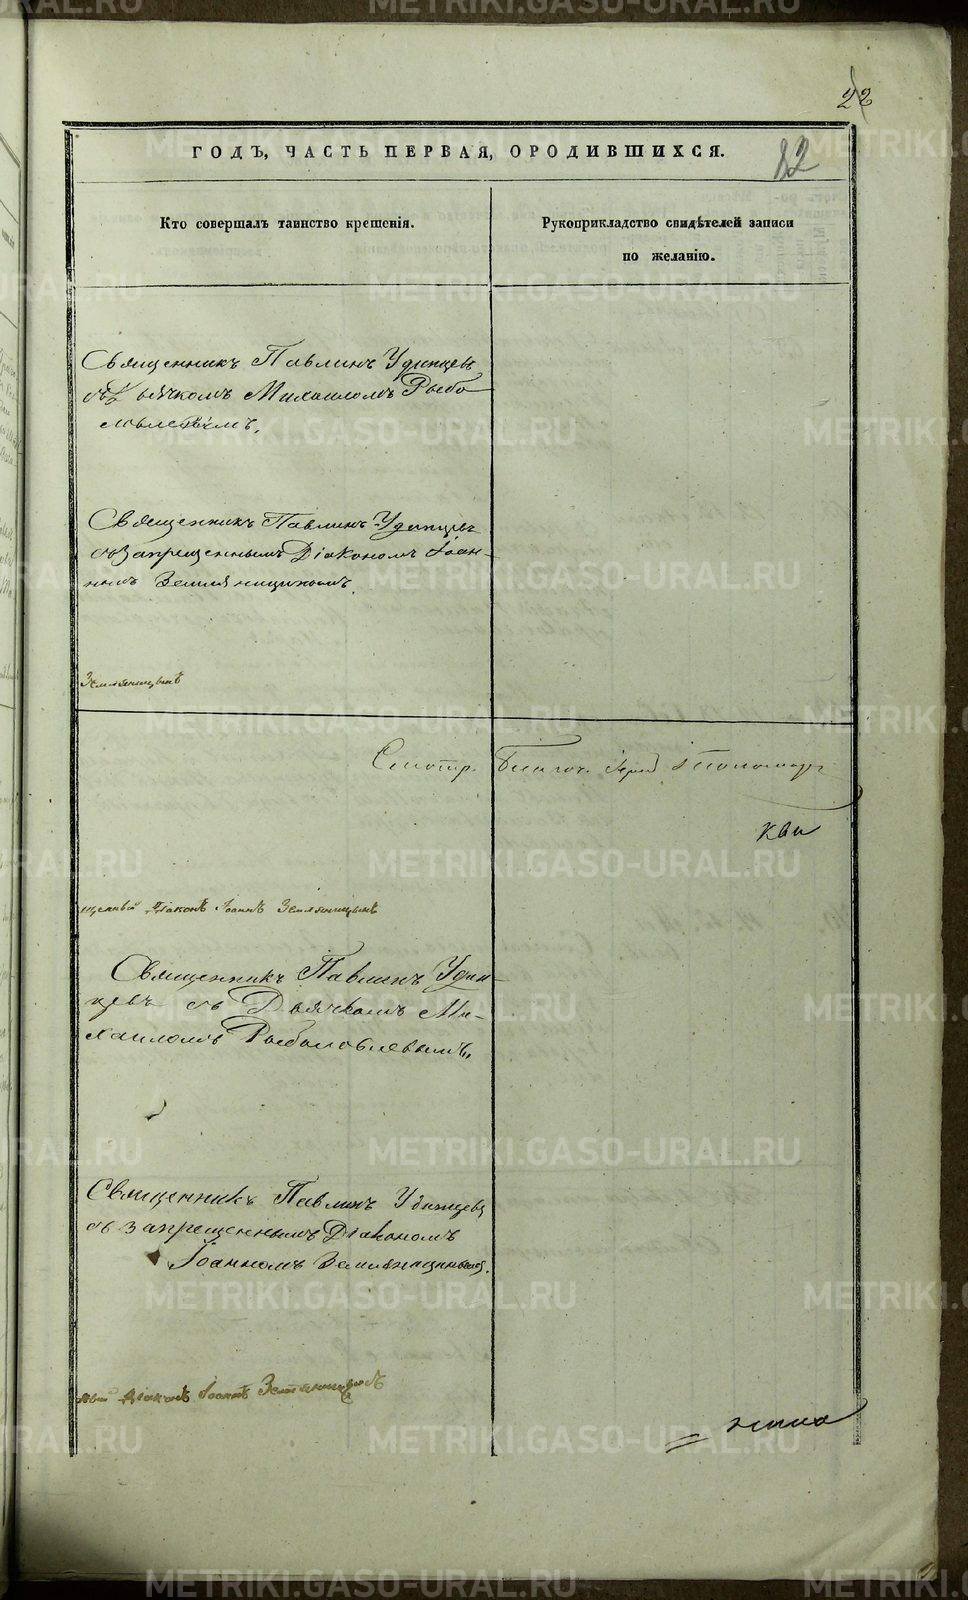 22
ГОДЪ, ЧАСТЬ ПЕРВАЯ, ОРОДИВШИХСЯ.
82
Кто совершалъ таинство крещенія.
Рукоприкладство свидѣтелей записи
по желанію.
Священникъ Павлинъ Удинцевъ
съ Дьячкомъ Михаиломъ Рыбо
ловлевымъ.
Священникъ Павлинъ Удинцевъ
съ запрещеннымъ Діакономъ Іоан-
номъ Земляницинымъ.
Земляницынъ
Смотр. Благоч.
щенный Діаконъ Іоаннъ Земляницынъ
Священникъ Павлинъ Удин-
цевъ съ Дьячкомъ Ми-
хаиломъ Рыболовлевымъ
Священникъ Павлинъ Удинцевъ
съ запрещеннымъ Діакономъ
Іоанномъ Земляницинымъ.
ный Діаконъ Іоаннъ Земляницынъ
METRIKI.GASO-URAL.RU